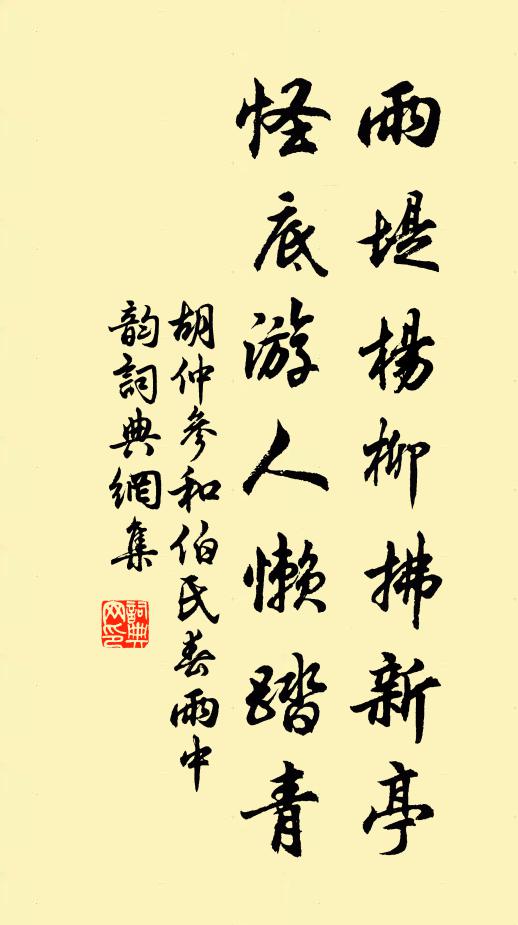 雨堤楊柳拂新亭
怪底游人懶踏青
胡仲參和伯氏春雨中
韵詞典網集
詞典
网印